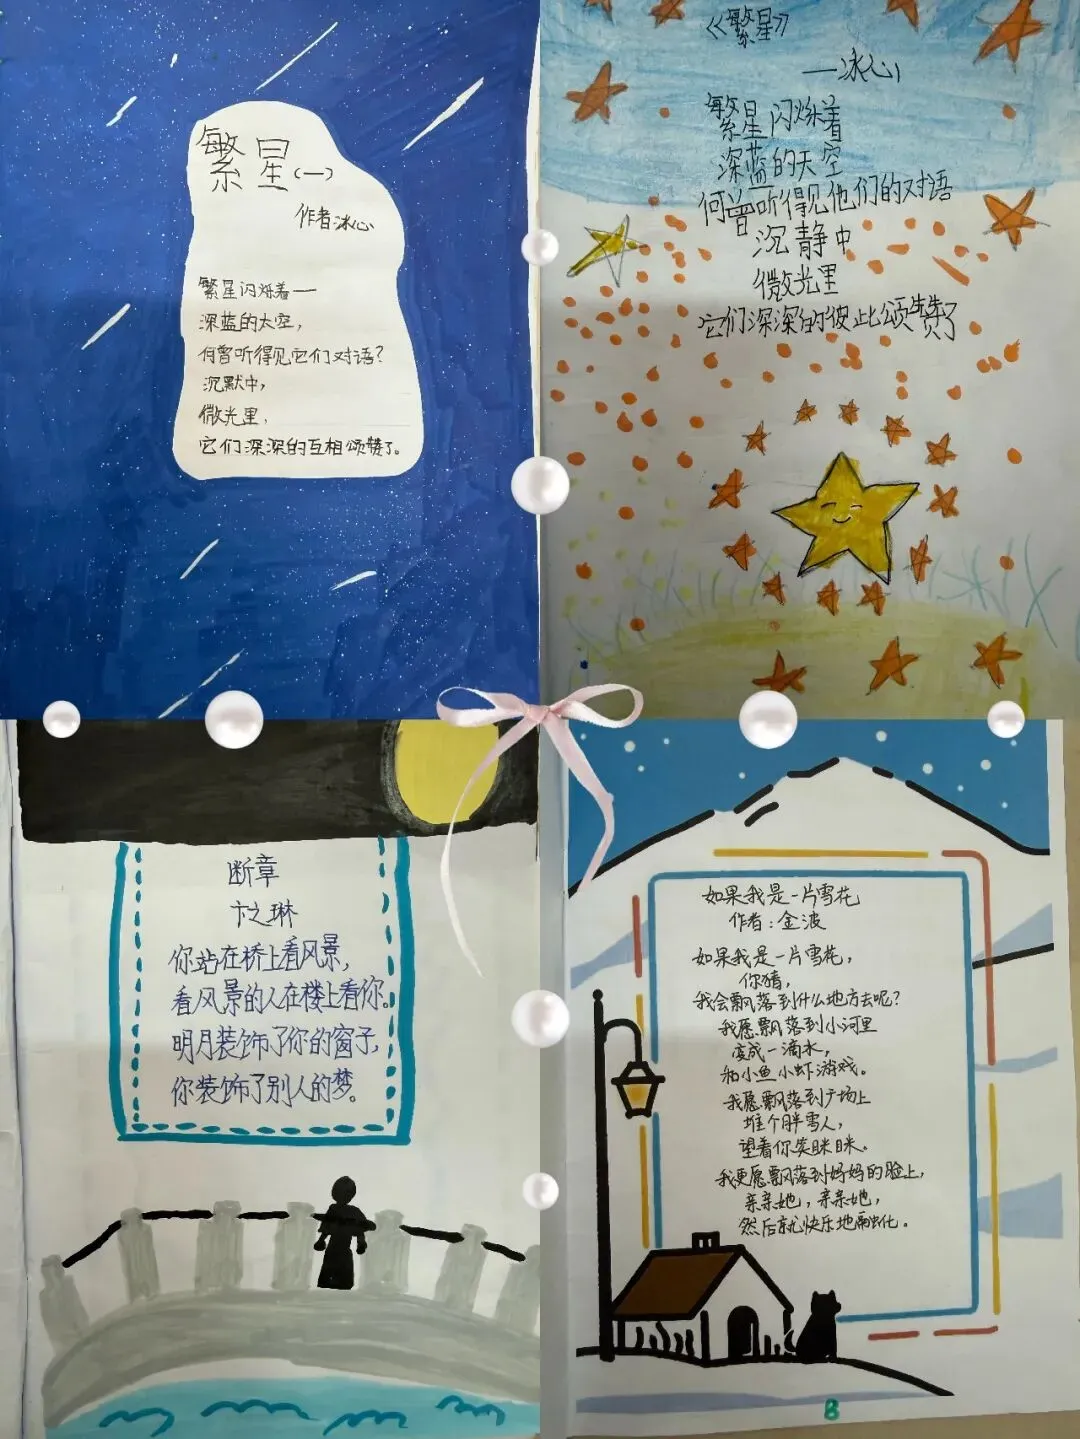 繁星(一)
作者冰心
繁星闪烁着一
深蓝的太空，
何曾听得见它们对语？
沉默中，
微光里，
它们深深的互相颂赞了。
《繁星》
—冰心
繁星闪烁着
深蓝的天空
何曾听得见他们的对语
沉静中
微光里
它们深深的彼此颂赞了
断章
卞之琳
你站在桥上看风景，
看风景的人在楼上看你。
明月装饰了你的窗子，
你装饰了别人的梦。
如果我是一片雪花
作者：金波
如果我是一片雪花，
你猜，
我会飘落到什么地方去呢？
我愿飘落到小河里
变成一滴水，
和小鱼小虾游戏。
我愿飘落到广场上
堆个胖雪人，
望着你笑眯眯。
我更愿飘落到妈妈的脸上，
亲亲她，亲亲她，
然后就快乐地融化。
8